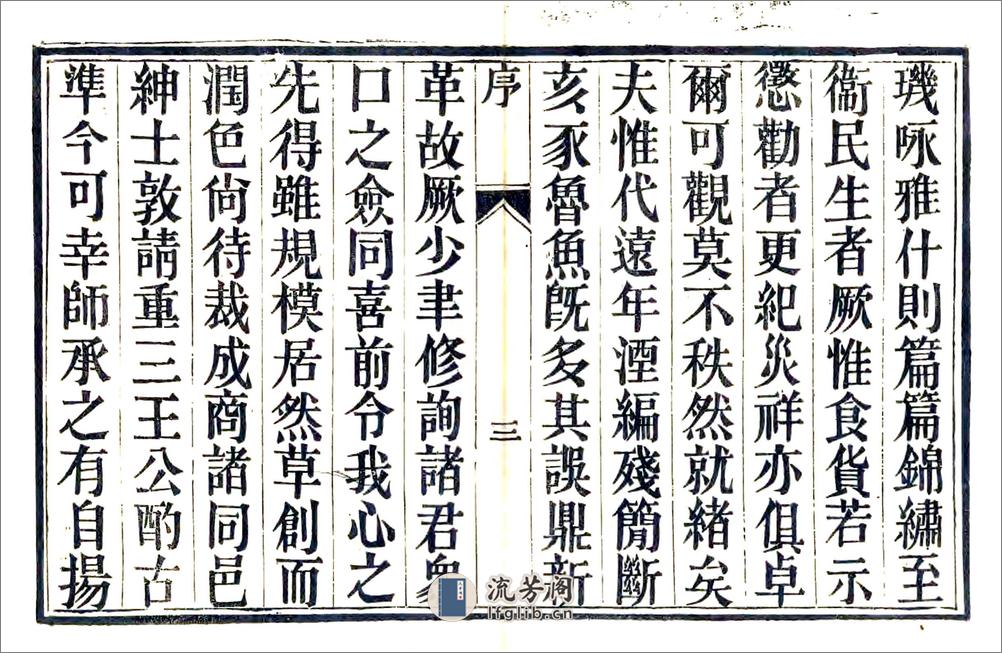 璣咏雅什則篇篇錦繡至
衞民生者厥惟食貨若示
懲勸者更紀災祥亦俱卓
爾可觀莫不秩然就緒矣
夫惟代遠年湮編殘簡斷
亥豕魯魚旣多其誤鼎新
序
三
革故厥少聿修詢諸君衆
口之僉同喜前令我心之
先得雖規模居然草創而
潤色尙待裁成商諸同邑
紳士敦請重三王公酌古
準今可幸師承之有自揚
流芳阁
lfglib.cn